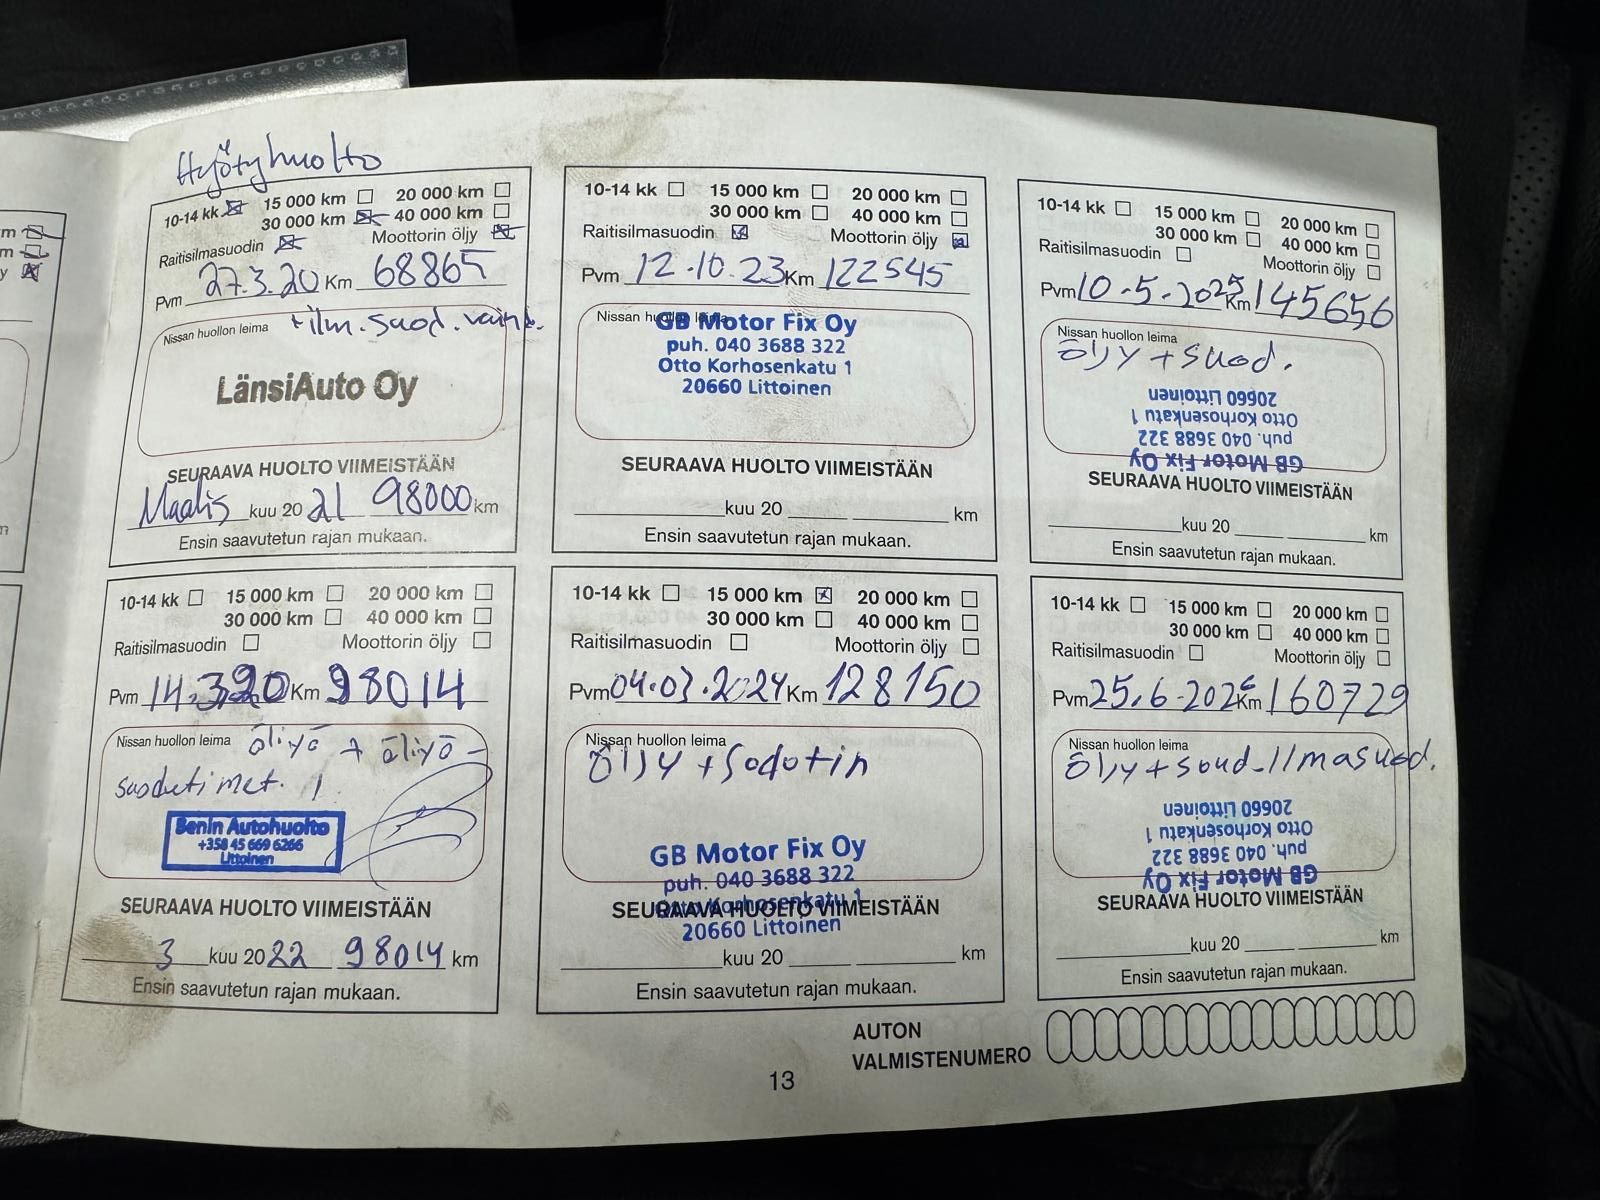 Hyötyhuolto
10-14 kk 15 000 km 20 000 km
30 000 km 40 000 km
Raitisilmasuodin Moottorin öljy
Pvm 27.3.20 Km 68865
Nissan huollon leima + ilm.suod.vaihd.
LänsiAuto Oy
SEURAAVA HUOLTO VIIMEISTÄÄN
Maalis kuu 20 21 98000 km
Ensin saavutetun rajan mukaan.
10-14 kk 15 000 km 20 000 km
30 000 km 40 000 km
Raitisilmasuodin Moottorin öljy
Pvm 12.10.23 Km 122545
Nissan huollon leima
GB Motor Fix Oy
puh. 040 3688 322
Otto Korhosenkatu 1
20660 Littoinen
SEURAAVA HUOLTO VIIMEISTÄÄN
kuu 20 km
Ensin saavutetun rajan mukaan.
10-14 kk 15 000 km 20 000 km
30 000 km 40 000 km
Raitisilmasuodin Moottorin öljy
Pvm 10.5.2025 Km 145656
Nissan huollon leima
öljy + suod.
GB Motor Fix Oy
puh. 040 3688 322
Otto Korhosenkatu 1
20660 Littoinen
SEURAAVA HUOLTO VIIMEISTÄÄN
kuu 20 km
Ensin saavutetun rajan mukaan.
10-14 kk 15 000 km 20 000 km
30 000 km 40 000 km
Raitisilmasuodin Moottorin öljy
Pvm 14. Km 98014
Nissan huollon leima öliyö + öliyö-
Benin Autohuolto
+358 45 669 6266
Littoinen
SEURAAVA HUOLTO VIIMEISTÄÄN
3 kuu 20 22 98014 km
Ensin saavutetun rajan mukaan.
10-14 kk 15 000 km 20 000 km
30 000 km 40 000 km
Raitisilmasuodin Moottorin öljy
Pvm 04.03.2024 Km 128150
Nissan huollon leima
Öljy + Sodotin
GB Motor Fix Oy
puh. 040 3688 322
Otto Korhosenkatu 1
SEURAAVA HUOLTO VIIMEISTÄÄN
20660 Littoinen
kuu 20 km
Ensin saavutetun rajan mukaan.
10-14 kk 15 000 km 20 000 km
30 000 km 40 000 km
Raitisilmasuodin Moottorin öljy
Pvm 25.6.2026 Km 160729
Nissan huollon leima
Öljy + soud. Ilmasuod.
GB Motor Fix Oy
puh. 040 3688 322
Otto Korhosenkatu 1
20660 Littoinen
SEURAAVA HUOLTO VIIMEISTÄÄN
kuu 20 km
Ensin saavutetun rajan mukaan.
AUTON
VALMISTENUMERO
13